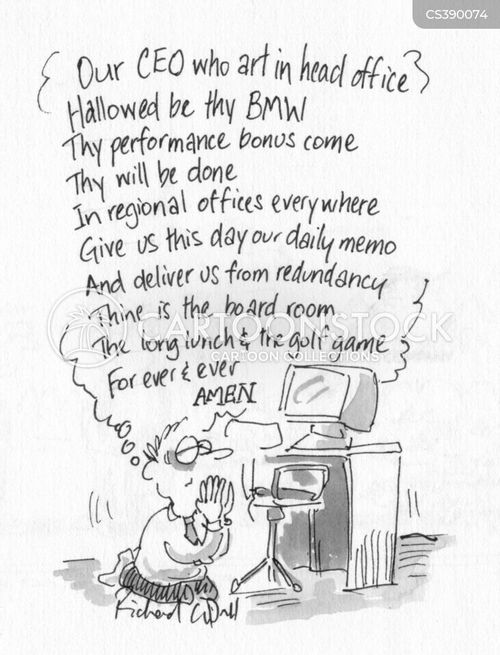 CS390074
Our CEO who art in head office
Hallowed be thy BMW
Thy performance bonus come
Thy will be done
In regional offices everywhere
Give us this day our daily memo
And deliver us from redundancy
Thine is the board room
The long lunch & the golf game
For ever & ever
AMEN
CARTOONSTOCK
CARTOON COLLECTIONS
Richard